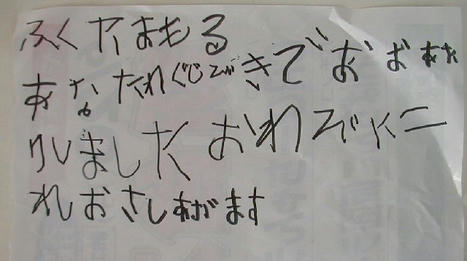 ふくたまもる
あなたわぐじびきでおおあた
りしましたおわびにこ
れおさしあげます